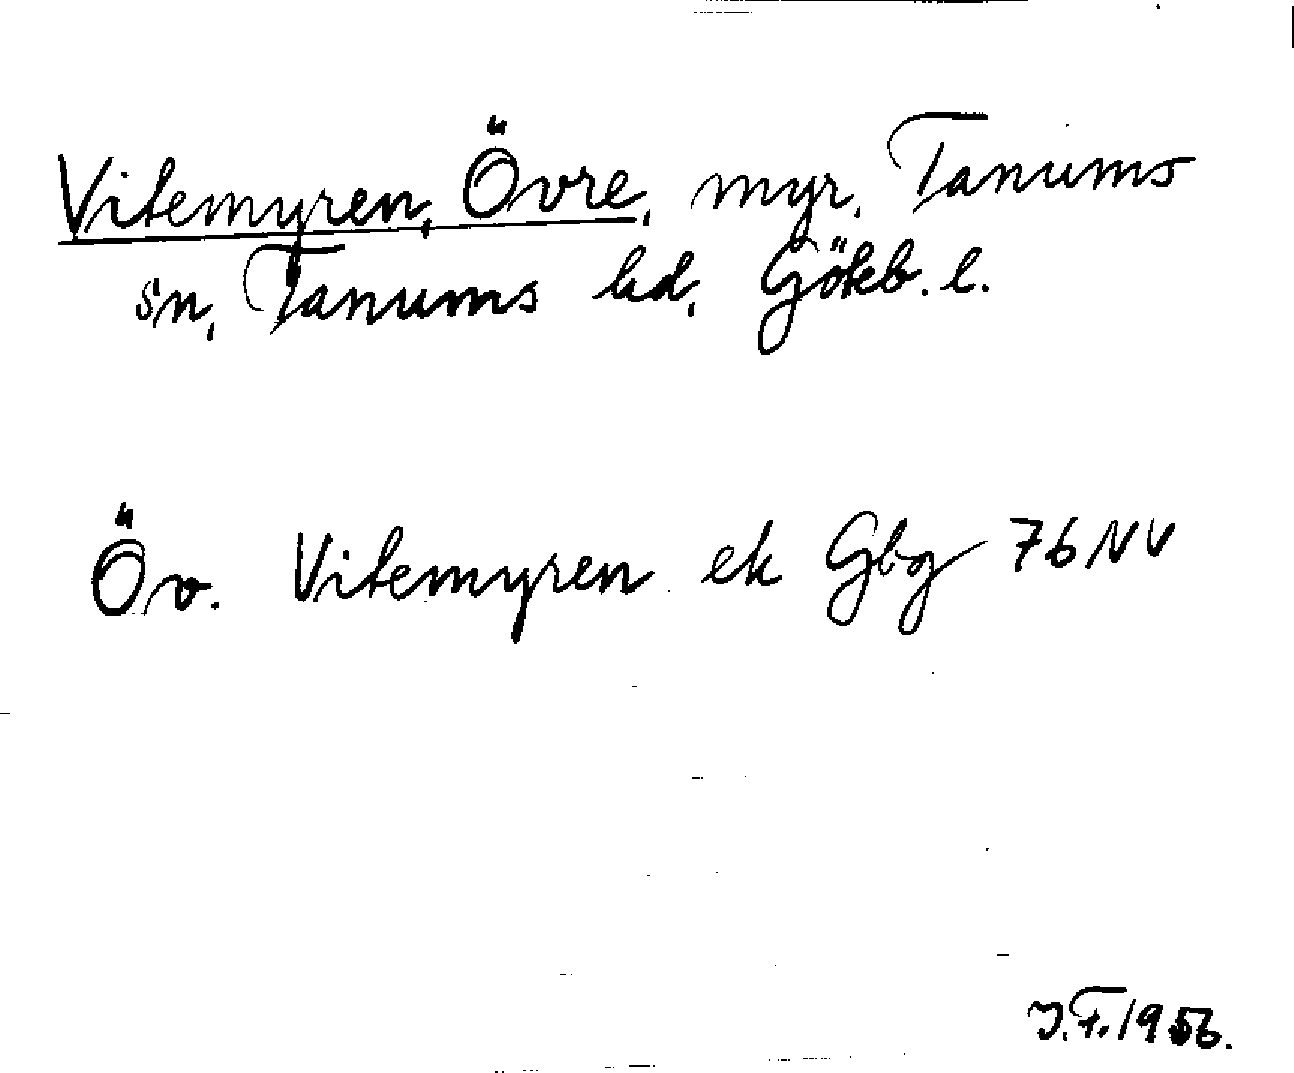 Vitemyren, Övre, myr, Tanums
sn, Tanums hd, Gökb. l.
Öv. Vitemyren ek Gbg 76 NV
J.F. 1956.